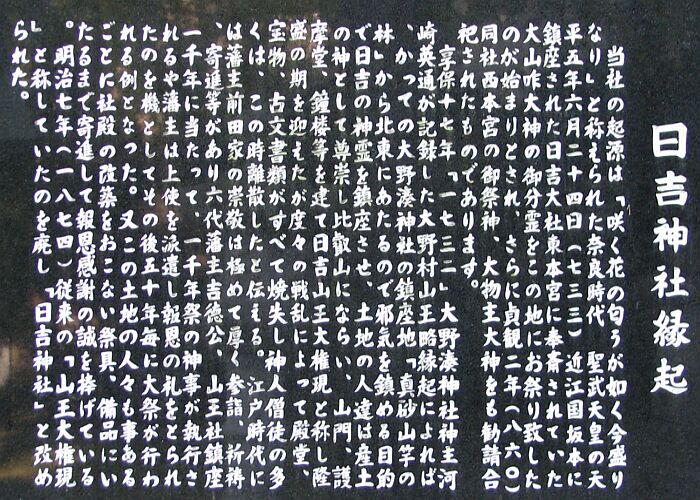 日吉神社縁起
当社の起源は「咲く花の匂うが如く今盛り
なり」と称えられた奈良時代　聖武天皇の天
平五年六月二十四日（七三三）近江国坂本に
鎮座された日吉大社東本宮に奉斎されていた
大山咋大神の御分霊をこの地にお祭り致した
のが始まりとされ、さらに貞観二年（八六〇）
同社西本宮の御祭神、大物主大神をも勧請合
祀されたものであります。
享保十七年「一七三二」大野湊神社神主河
崎英通が記録した大野村山王略縁起によれば
、かつての大野湊神社の鎮座地「真砂山竿の
林」から北東にあたるので邪気を鎮める目的
で日吉の神霊を鎮座させ、土地の人達は産土
の神として尊崇し比叡山にならい、山門、護
摩堂、鐘楼等を建て日吉山王大権現と称し隆
盛の期を迎えたが度々の戦乱によって殿堂、
宝物、古文書類がすべて焼失し神人僧徒の多
くは、この時離散したと伝える。江戸時代に
は藩主前田家の崇敬は極めて厚く参詣、祈祷
、寄進等があり六代藩主吉徳公、山王社鎮座
一千年に当たって、一千年祭の神事が執行さ
れるや藩主は上使を派遣し報恩の礼をとられ
たのを機としてその後五十年毎に大祭が行わ
れる例となった。又この土地の人々も事ある
ごとに社殿の改築をおこない祭具、備品にい
たるまで寄進して報恩感謝の誠を捧げている
。明治七年（一八七四）従来の「山王大権現
」と称していたのを廃し「日吉神社」と改め
られた。